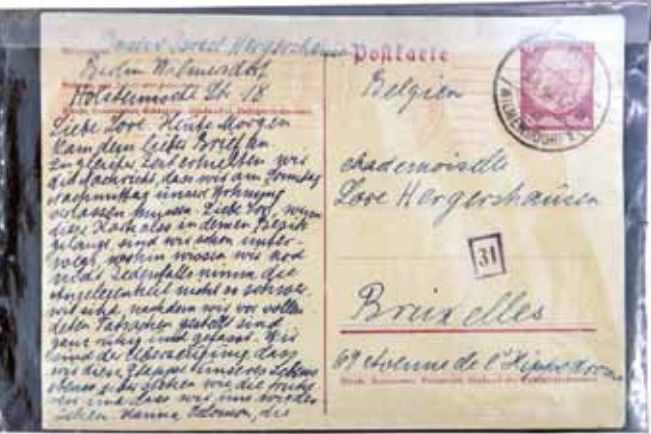 Israel Hergershausen
Berlin Wilmersdorf
Str. 18
Liebe Lore. Heute Morgen
kam dein lieber Brief an
zu gleicher Zeit erhielten wir
die Nachricht, dass wir am Sonntag
Nachmittag unsere Wohnung
verlassen müssen. Liebe Lore, wenn
diese Karte also in deinen Besitz
gelangt sind wir schon unter-
wegs, wohin wissen wir noch
nicht. Jedenfalls nimm die
Angelegenheit nicht so schwer.
wir sind, nachdem wir vor vollen
deten Tatsachen gestellt sind
ganz ruhig und gefasst. Wir
sind der Überzeugung dass
wir diese Etappe unseres Lebens
ebenso wie die
dass wir uns wieder
sehen. Hanna Salomon, die
Postkarte
Belgien
Mademoiselle
Lore Hergershausen
31
Bruxelles
69 Avenue de l'Hippodrome
WILMERSDORF